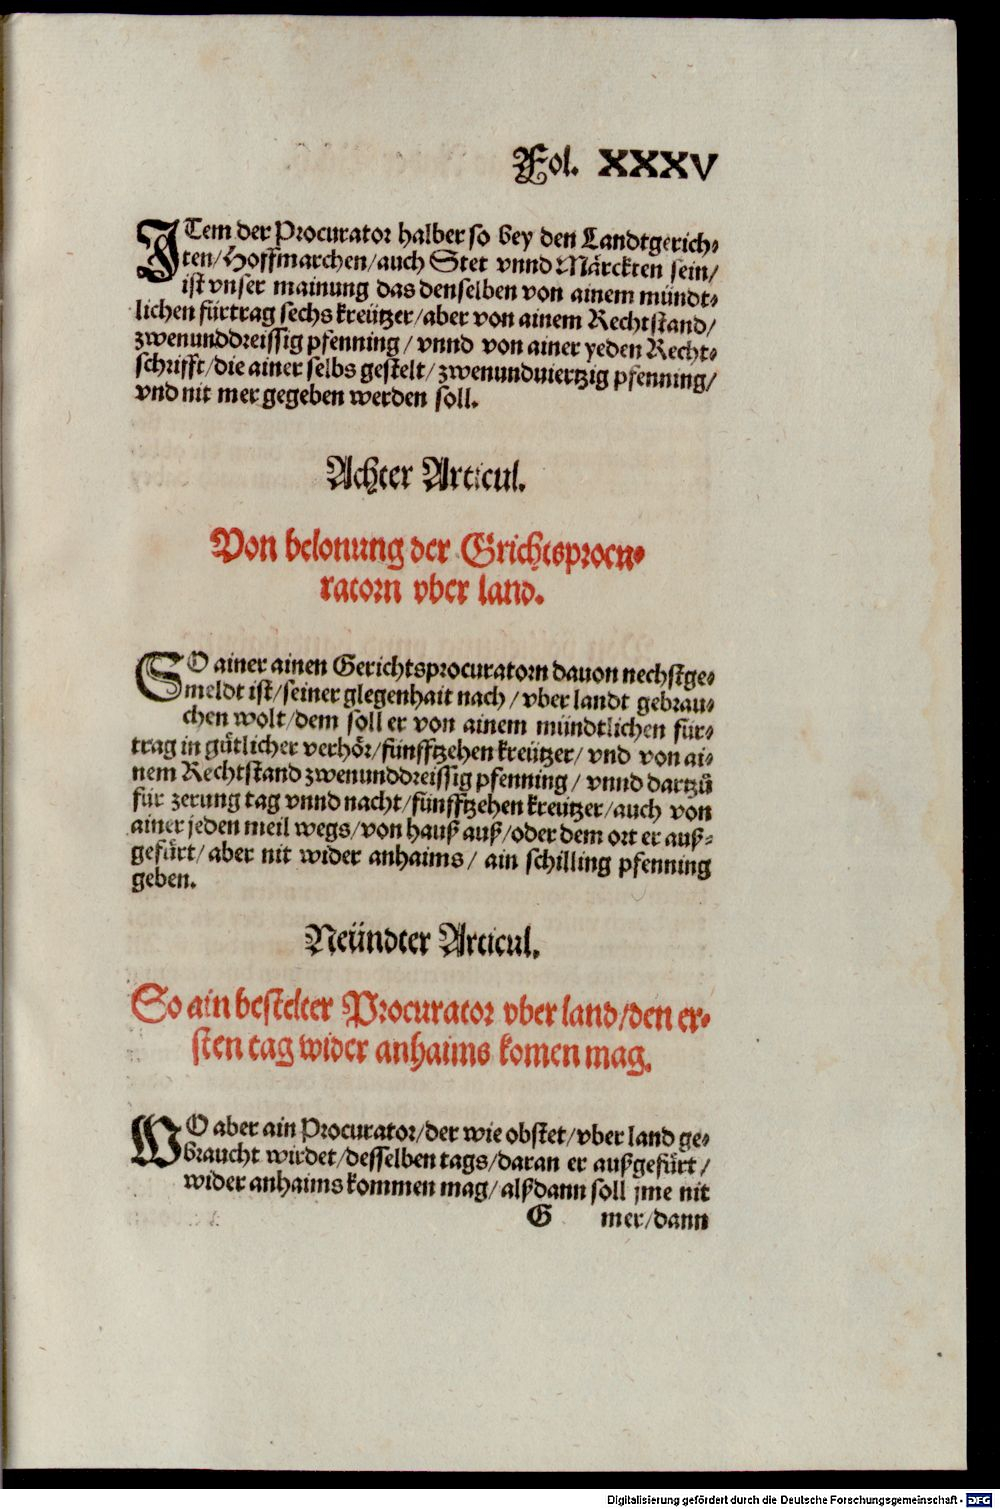 Fol. XXXV
ITem der Procurator halber so bey den Landtgerich⸗
ten/Hoffmarchen/auch Stet vnnd Märckten sein/
ist vnser mainung das denselben von ainem mündt⸗
lichen fürtrag sechs kreützer/aber von ainem Rechtstand/
zwenunddreissig pfenning/ vnnd von ainer yeden Recht⸗
schrifft/die ainer selbs gestelt/ zwenunduiertzig pfenning/
vnd nit mer gegeben werden soll.
Achter Articul.
Von belonung der Grichtsprocu⸗
ratorn vber land.
SO ainer ainen Gerichtsprocuratorn dauon nechstge⸗
meldt ist/seiner glegenhait nach/ vber landt gebrau⸗
chen wolt/dem soll er von ainem mündtlichen für⸗
trag in gütlicher verhör/fünfftzehen kreützer/ vnd von ai⸗
nem Rechtstand zwenunddreissig pfenning/ vnnd dartzů
für zerung tag vnnd nacht/fünfftzehen kreutzer/auch von
ainer jeden meil wegs/von hauß auß/oder dem ort er auß⸗
gefürt/ aber nit wider anhaims/ ain schilling pfenning
geben.
Neündter Articul.
So ain bestelter Procurator vber land/den er⸗
sten tag wider anhaims komen mag.
WO aber ain Procurator/der wie obstet/vber land ge⸗
braucht wirdet/desselben tags/daran er außgefürt/
wider anhaims kommen mag/ alßdann soll jme nit
G mer/dann
Digitalisierung gefördert durch die Deutsche Forschungsgemeinschaft - DFG